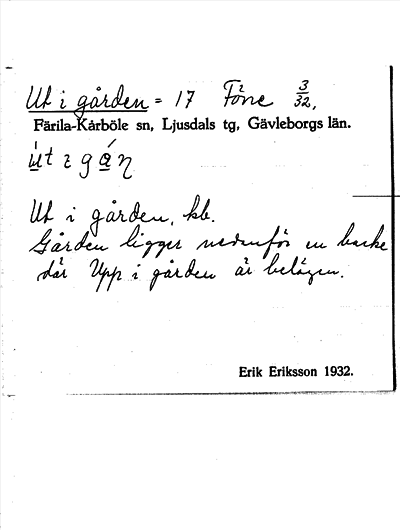 Ut i gården = 17 Föne 3/32.
Färila-Kårböle sn, Ljusdals tg, Gävleborgs län.
Ut i gården, kb.
Gården ligger nedanför en backe
där Upp i gården är belägen.
Erik Eriksson 1932.